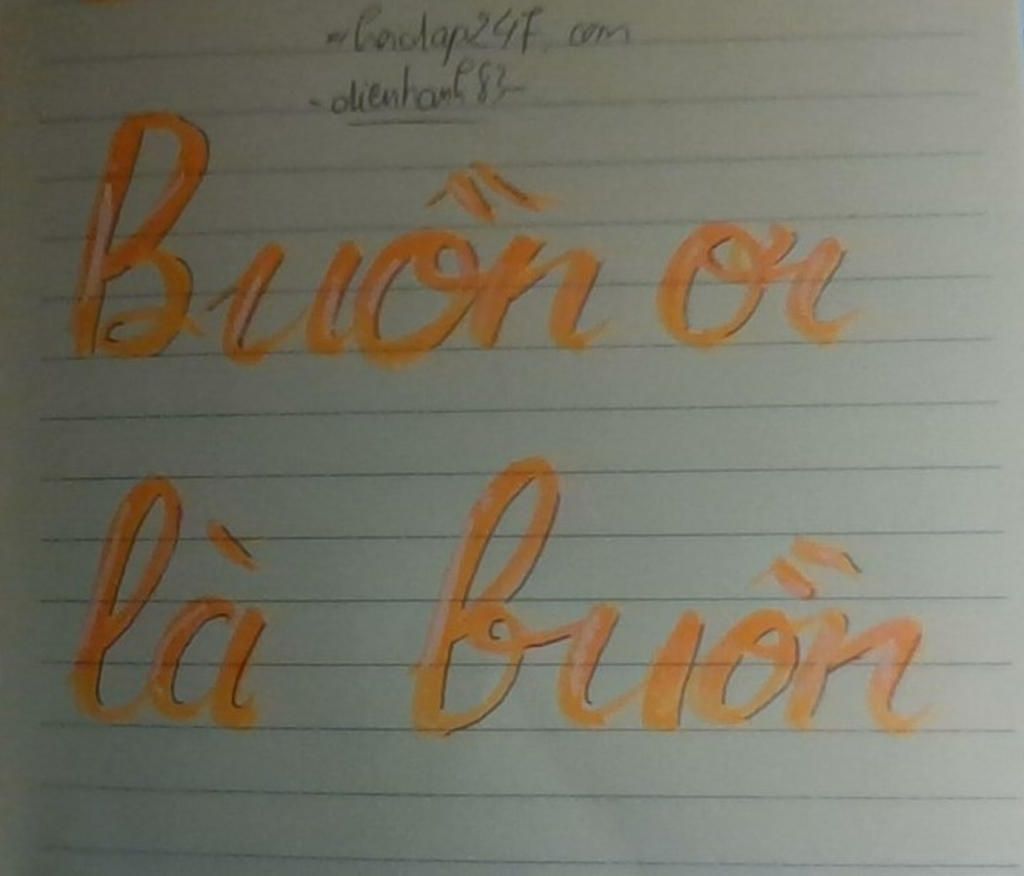 - hoidap247.com
- dienhanh83
Buồn ơi
là buồn